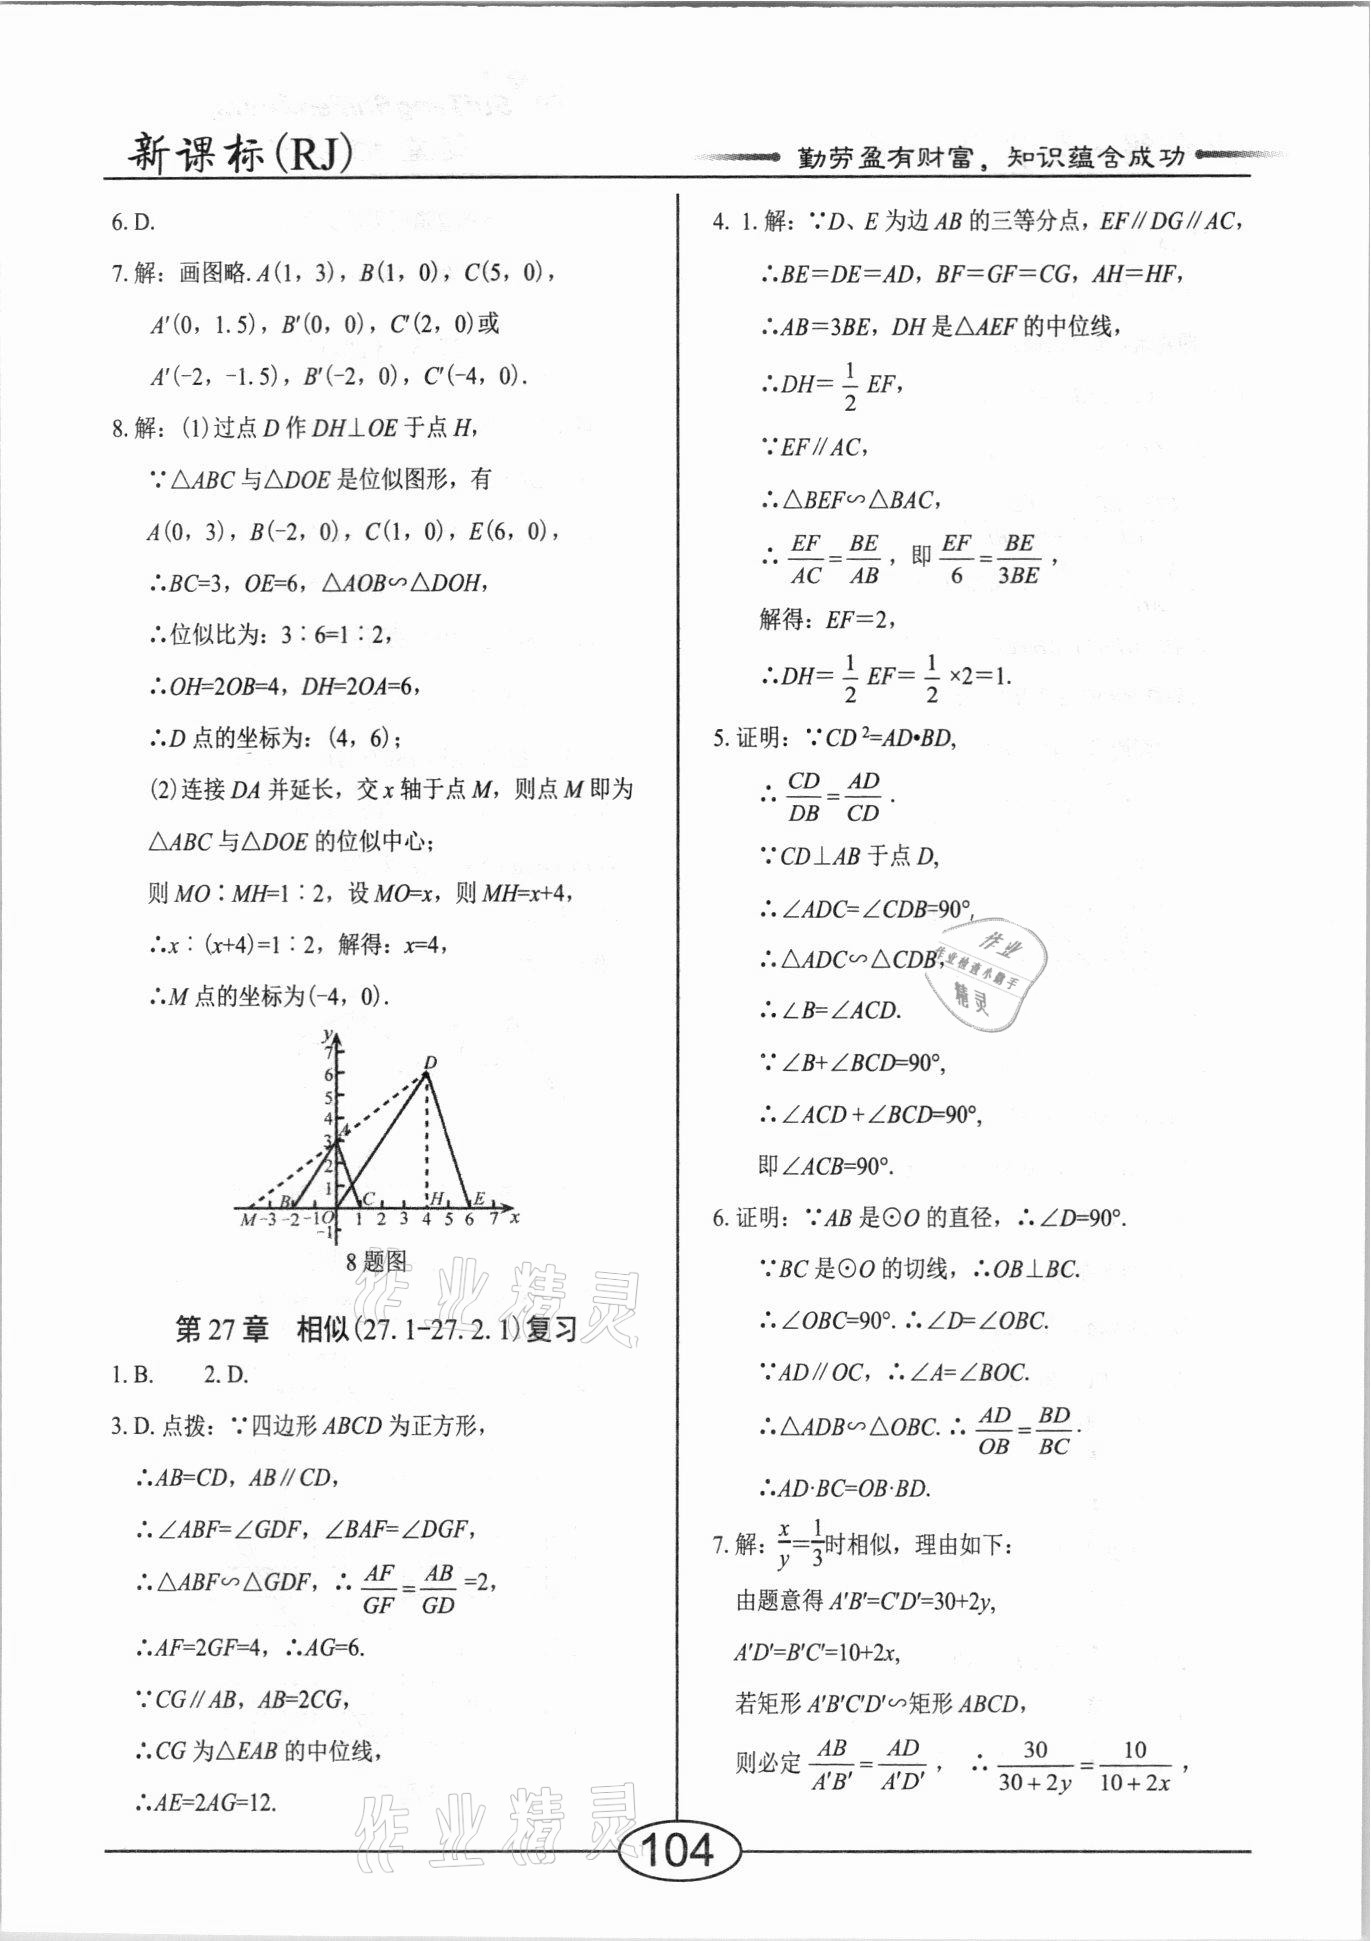 新课标(RJ)
勤劳盈有财富，知识蕴含成功
6. D.
7. 解：画图略. A(1，3)，B(1，0)，C(5，0)，
A′(0，1.5)，B′(0，0)，C′(2，0)或
A′(-2，-1.5)，B′(-2，0)，C′(-4，0).
8. 解：(1)过点 D 作 DH⊥OE 于点 H，
∵△ABC 与△DOE 是位似图形，有
A(0，3)，B(-2，0)，C(1，0)，E(6，0)，
∴BC=3，OE=6，△AOB∽△DOH，
∴位似比为：3∶6=1∶2，
∴OH=2OB=4，DH=2OA=6，
∴D 点的坐标为：(4，6)；
(2)连接 DA 并延长，交 x 轴于点 M，则点 M 即为
△ABC 与△DOE 的位似中心；
则 MO∶MH=1∶2，设 MO=x，则 MH=x+4，
∴x∶(x+4)=1∶2，解得：x=4，
∴M 点的坐标为(-4，0).
y
7
6 D
5
4
3 A
2
1
B C H E
M -3 -2 -1 O 1 2 3 4 5 6 7 x
-1
8 题图
第 27 章 相似(27.1-27.2.1)复习
1. B. 2. D.
3. D. 点拨：∵四边形 ABCD 为正方形，
∴AB=CD，AB∥CD，
∴∠ABF=∠GDF，∠BAF=∠DGF，
∴△ABF∽△GDF，∴AF/GF=AB/GD=2，
∴AF=2GF=4，∴AG=6.
∵CG∥AB，AB=2CG，
∴CG 为△EAB 的中位线，
∴AE=2AG=12.
4. 1. 解：∵D、E 为边 AB 的三等分点，EF∥DG∥AC，
∴BE=DE=AD，BF=GF=CG，AH=HF，
∴AB=3BE，DH 是△AEF 的中位线，
∴DH=1/2 EF，
∵EF∥AC，
∴△BEF∽△BAC，
∴EF/AC=BE/AB，即 EF/6=BE/3BE，
解得：EF=2，
∴DH=1/2 EF=1/2×2=1.
5. 证明：∵CD²=AD•BD，
∴CD/DB=AD/CD.
∵CD⊥AB 于点 D，
∴∠ADC=∠CDB=90°，
∴△ADC∽△CDB，
∴∠B=∠ACD.
∵∠B+∠BCD=90°，
∴∠ACD+∠BCD=90°，
即∠ACB=90°.
6. 证明：∵AB 是⊙O 的直径，∴∠D=90°.
∵BC 是⊙O 的切线，∴OB⊥BC.
∴∠OBC=90°. ∴∠D=∠OBC.
∵AD∥OC，∴∠A=∠BOC.
∴△ADB∽△OBC. ∴AD/OB=BD/BC.
∴AD·BC=OB·BD.
7. 解：x/y=1/3时相似，理由如下：
由题意得 A′B′=C′D′=30+2y，
A′D′=B′C′=10+2x，
若矩形 A′B′C′D′∽矩形 ABCD，
则必定 AB/A′B′=AD/A′D′，∴30/(30+2y)=10/(10+2x)，
104
作业
作业检查小助手
精灵
作业精灵
作业精灵